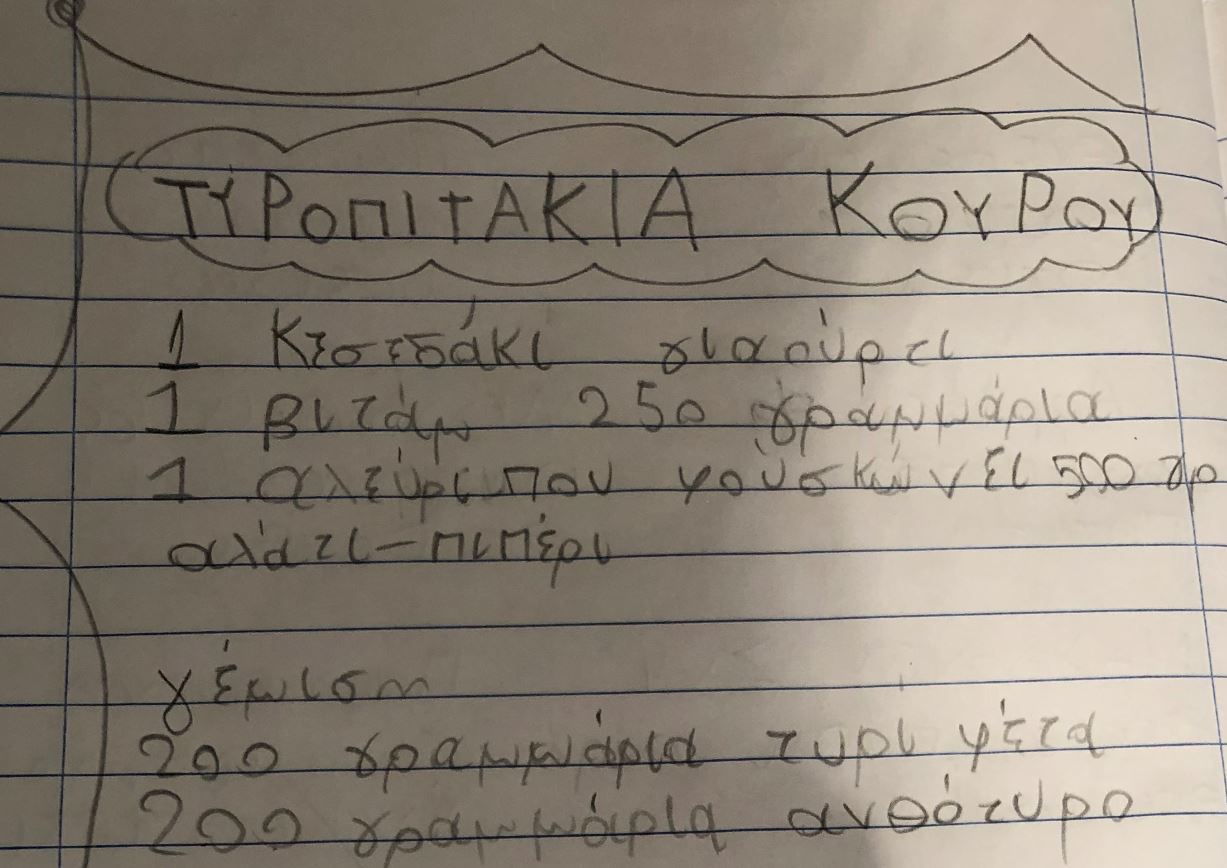 ΤΥΡΟΠΙΤΑΚΙΑ ΚΟΥΡΟΥ
1 Κεσεδάκι γιαούρτι
1 βιτάμ 250 γραμμάρια
1 αλεύρι που φουσκώνει 500 γρ
αλάτι-πιπέρι
γέμιση
200 γραμμάρια τυρι φέτα
200 γραμμάρια ανθότυρο